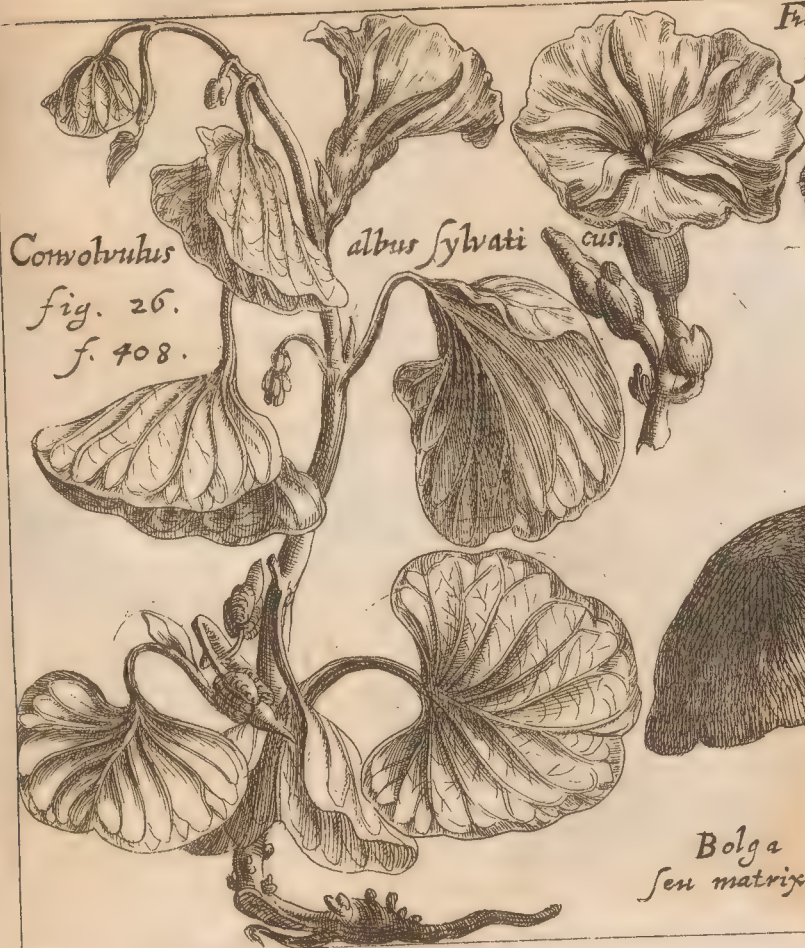 Convolvulus albus ſylvati cus.
fig. 26.
f. 408.
Bolga
ſeu matrix